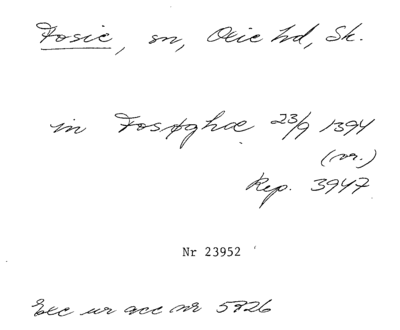 Fosie, sn, Oxie hd, Sk.
in Fosøghæ 23/9 1394
(or.)
Rep. 3947
Nr 23952
Exc ur acc nr 5826